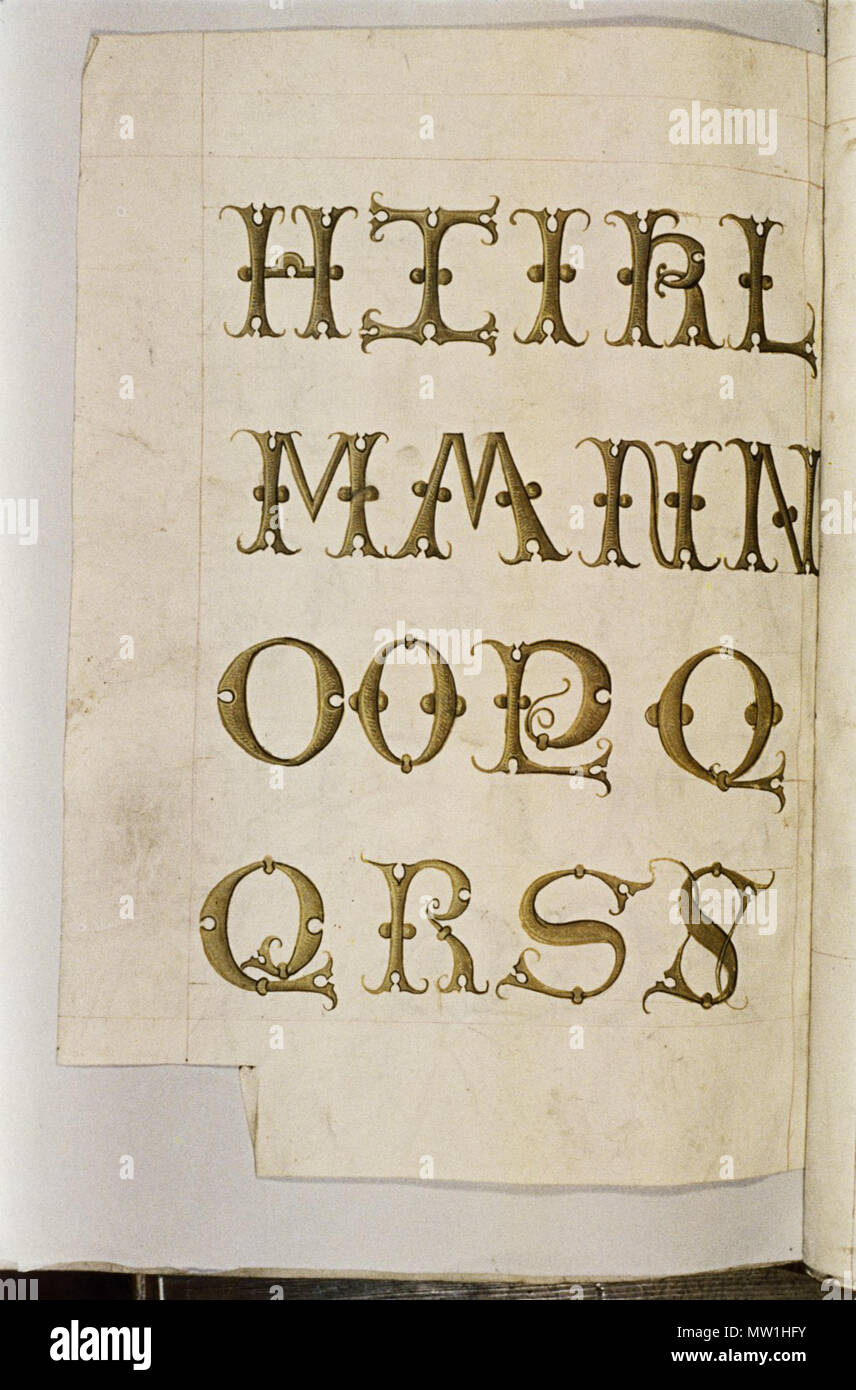 H I I K L
M M N N N
O O P Q
Q R S S
alamy
Image ID: MW1HFY
www.alamy.com